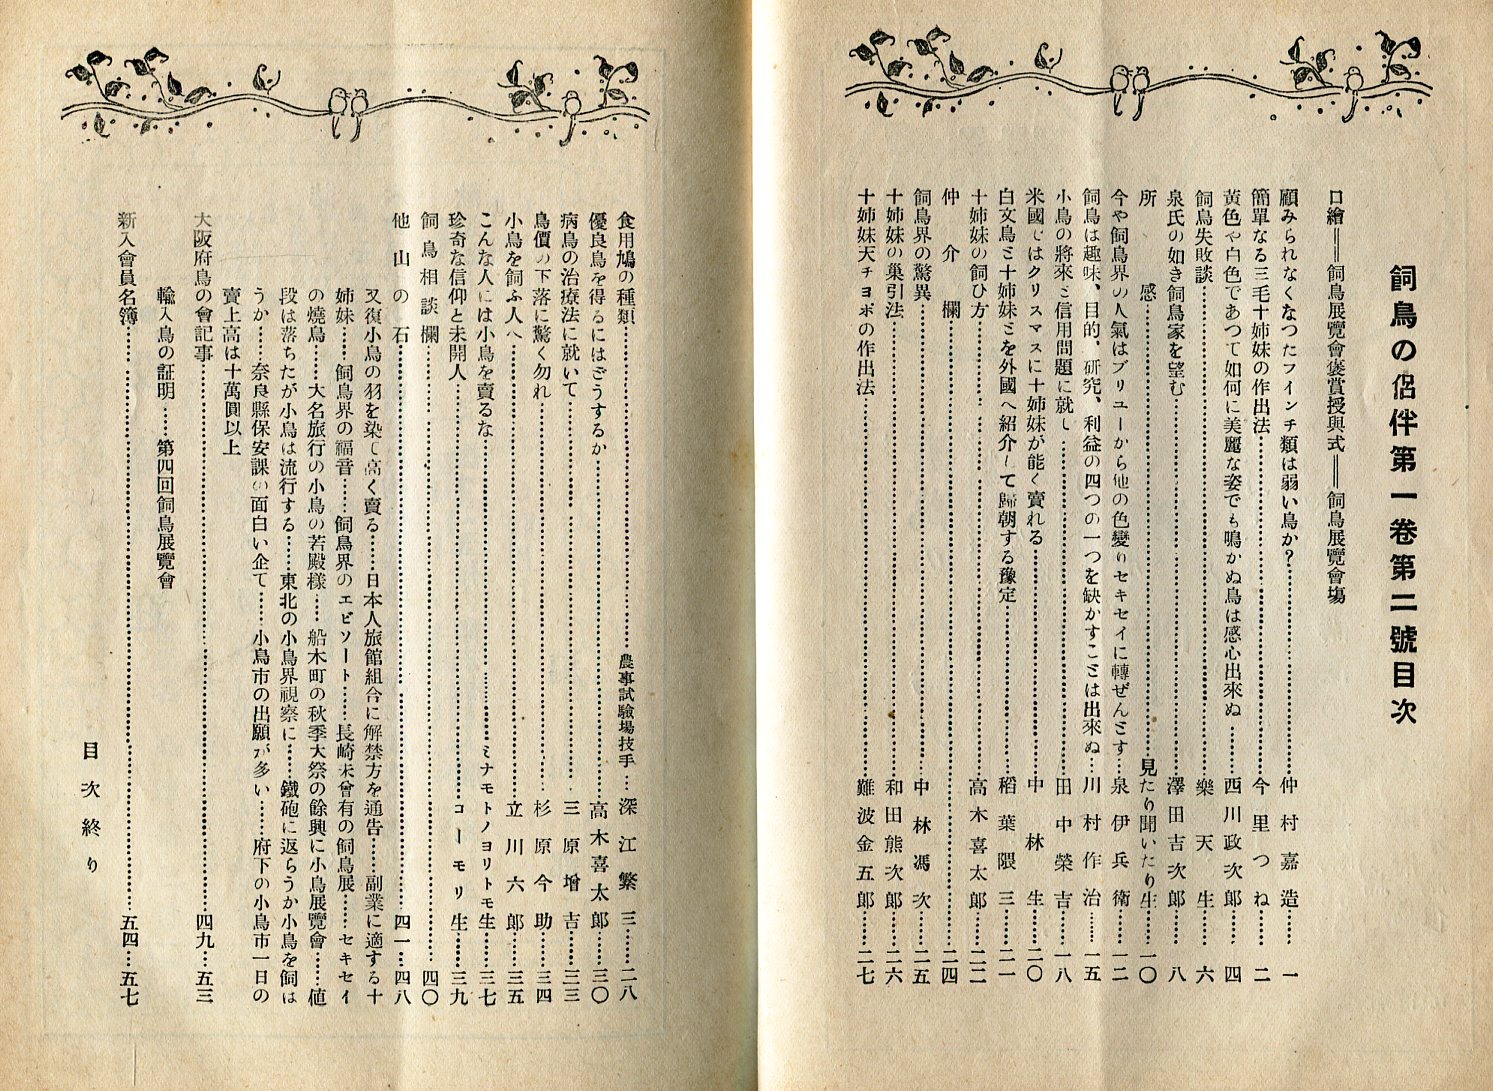 飼鳥の侶伴第一卷第二號目次
口繪＝飼鳥展覽會褒賞授與式＝飼鳥展覽會場
顧みられなくなつたフインチ類は弱い鳥か？……仲村嘉造……一
簡單なる三毛十姉妹の作出法……今里つね……二
黃色や白色であつて如何に美麗な姿でも鳴かぬ鳥は感心出來ぬ……西川政次郎……四
飼鳥失敗談……樂天生……六
泉氏の如き飼鳥家を望む……澤田吉次郎……八
所感……見たり聞いたり生……一〇
今や飼鳥界の人氣はブリユーから他の色變りセキセイに轉ぜんとす……泉伊兵衛……一二
飼鳥は趣味、目的、硏究、利益の四つの一つを缺かすことは出來ぬ……川村作治……一五
小鳥の將來と信用問題に就し……田中榮吉……一八
米國ではクリスマスに十姉妹が能く賣れる……中林生……二〇
白文鳥と十姉妹とを外國へ紹介して歸朝する豫定……稻葉隈三……二一
十姉妹の飼ひ方……高木喜太郎……二二
仲介欄……二四
飼鳥界の驚異……中林馮次……二五
十姉妹の巢引法……和田熊次郎……二六
十姉妹天チヨボの作出法……難波金五郎……二七
食用鳩の種類……農事試驗場技手…深江繁三……二八
優良鳥を得るにはどうするか……高木喜太郎……三〇
病鳥の治療法に就いて……三原增吉……三三
鳥價の下落に驚く勿れ……杉原今助……三四
小鳥を飼ふ人へ……立川六郎……三五
こんな人には小鳥を賣るな……ミナモトノヨリトモ生……三七
珍奇な信仰と未開人……コーモリ生……三九
飼鳥相談欄……四〇
他山の石……四一…四八
又復小鳥の羽を染て高く賣る……日本人旅館組合に解禁方を通告……副業に適する十
姉妹……飼鳥界の福音……飼鳥界のエピソート……長崎未曾有の飼鳥展……セキセイ
の燒鳥……大名旅行の小鳥の若殿樣……船木町の秋季大祭の餘興に小鳥展覽會……値
段は落ちたが小鳥は流行する……東北の小鳥界視察に……鐵砲に返らうか小鳥を飼は
うか……奈良縣保安課の面白い企て……小鳥市の出願が多い……府下の小鳥市一日の
賣上高は十萬圓以上
大阪府鳥の會記事……四九…五三
輸入鳥の証明……第四回飼鳥展覽會
新入會員名簿……五四…五七
目次終り